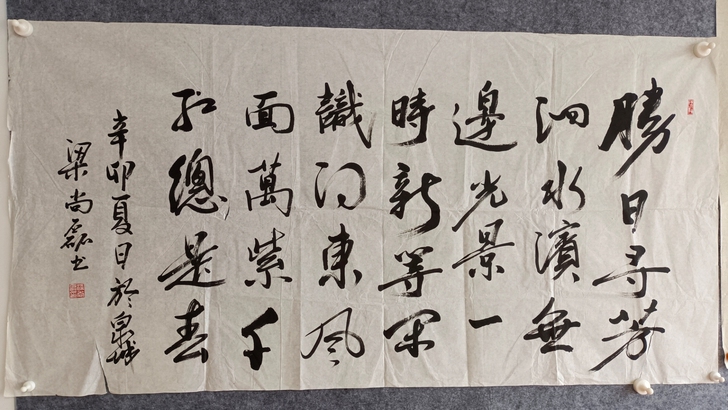 勝日尋芳
泗水濱無
邊光景一
時新等閑
識得東風
面萬紫千
紅總是春
辛卯夏日於泉城
梁尚磊书